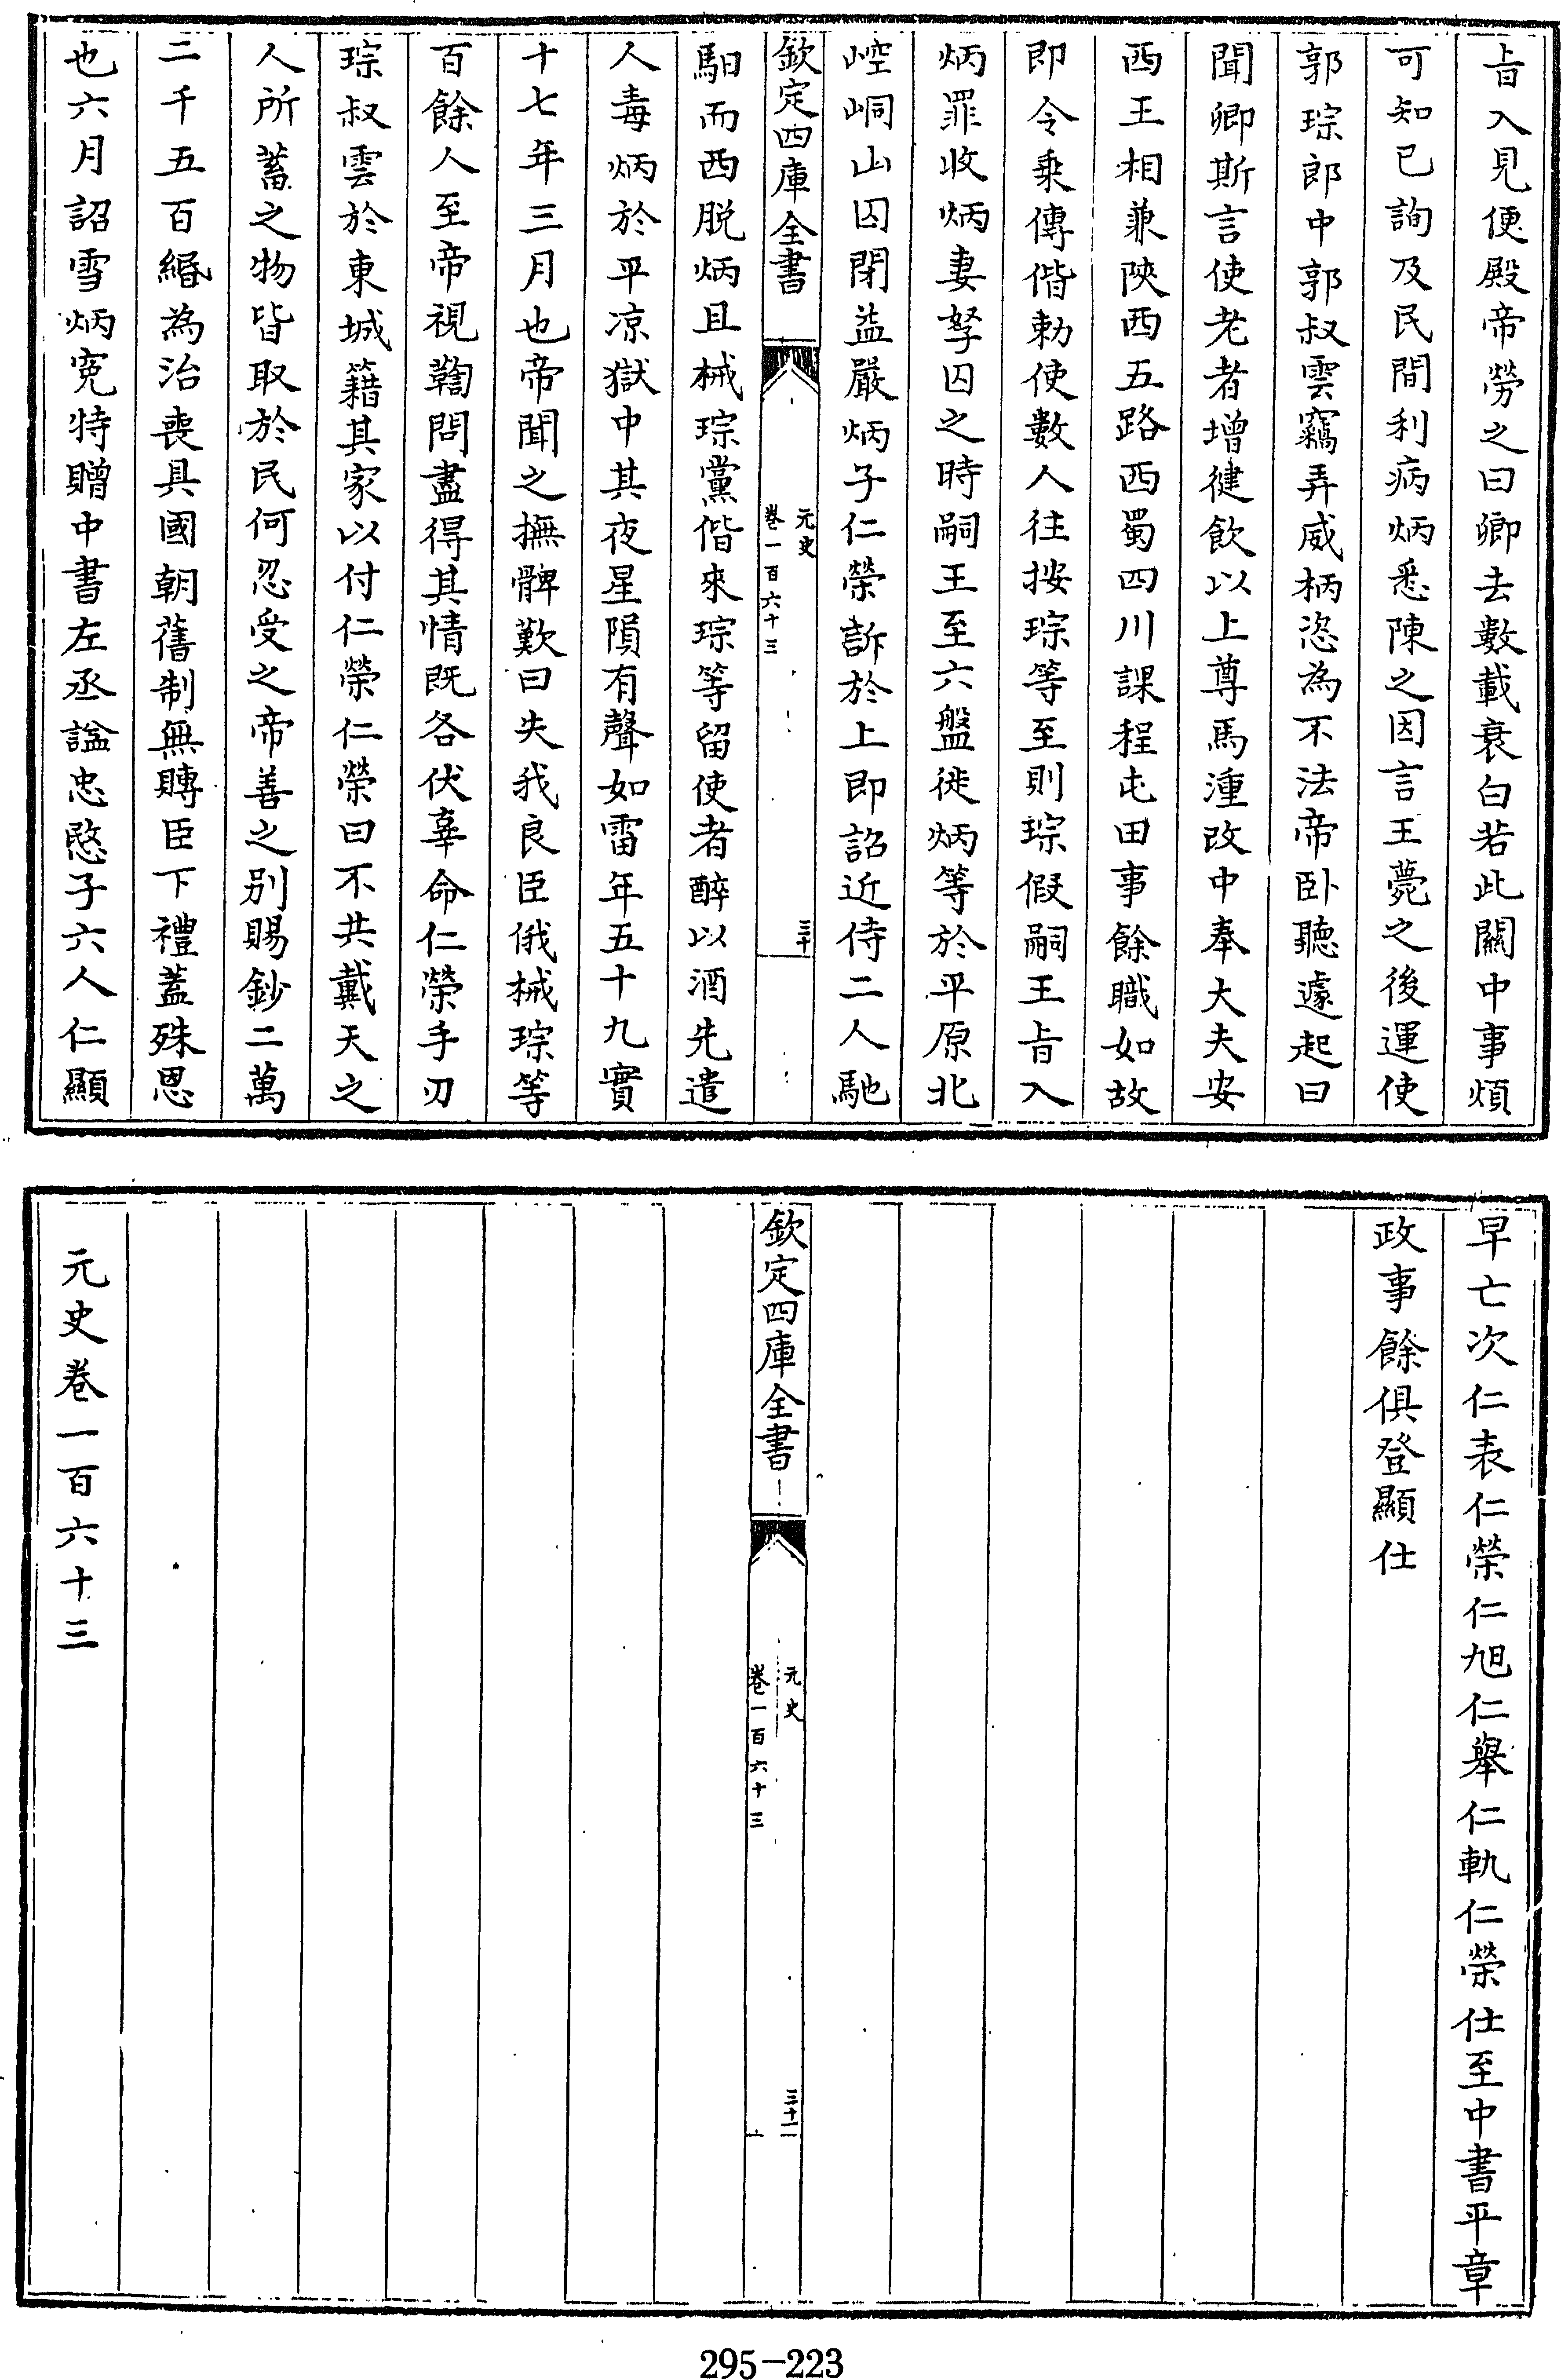 旨入見便殿帝勞之曰卿去數載衰白若此關中事煩
可知已詢及民間利病炳悉陳之因言王薨之後運使
郭琮郎中郭叔雲竊弄威柄恣為不法帝卧聽遽起曰
聞卿斯言使老者增健飲以上尊馬湩改中奉大夫安
西王相兼陝西五路西蜀四川課程屯田事餘職如故
即令乗傳偕勅使數人往按琮等至則琮假嗣王旨入
炳罪收炳妻孥囚之時嗣王至六盤徙炳等於平原北
崆峒山囚閉益嚴炳子仁榮訴於上即詔近侍二人馳
欽定四庫全書
元史
卷一百六十三
三十
馹而西脱炳且械琮黨偕來琮等留使者醉以酒先遣
人毒炳於平凉獄中其夜星隕有聲如雷年五十九實
十七年三月也帝聞之撫髀歎曰失我良臣俄械琮等
百餘人至帝視鞫問盡得其情既各伏辜命仁榮手刃
琮叔雲於東城籍其家以付仁榮仁榮曰不共戴天之
人所蓄之物皆取於民何忍受之帝善之别賜鈔二萬
二千五百緡為治喪具國朝舊制無賻臣下禮蓋殊恩
也六月詔雪炳寃特贈中書左丞諡忠愍子六人仁顯
早亡次仁表仁榮仁旭仁舉仁軌仁榮仕至中書平章
政事餘俱登顯仕
欽定四庫全書
元史
卷一百六十三
三十一
元史卷一百六十三
295-223